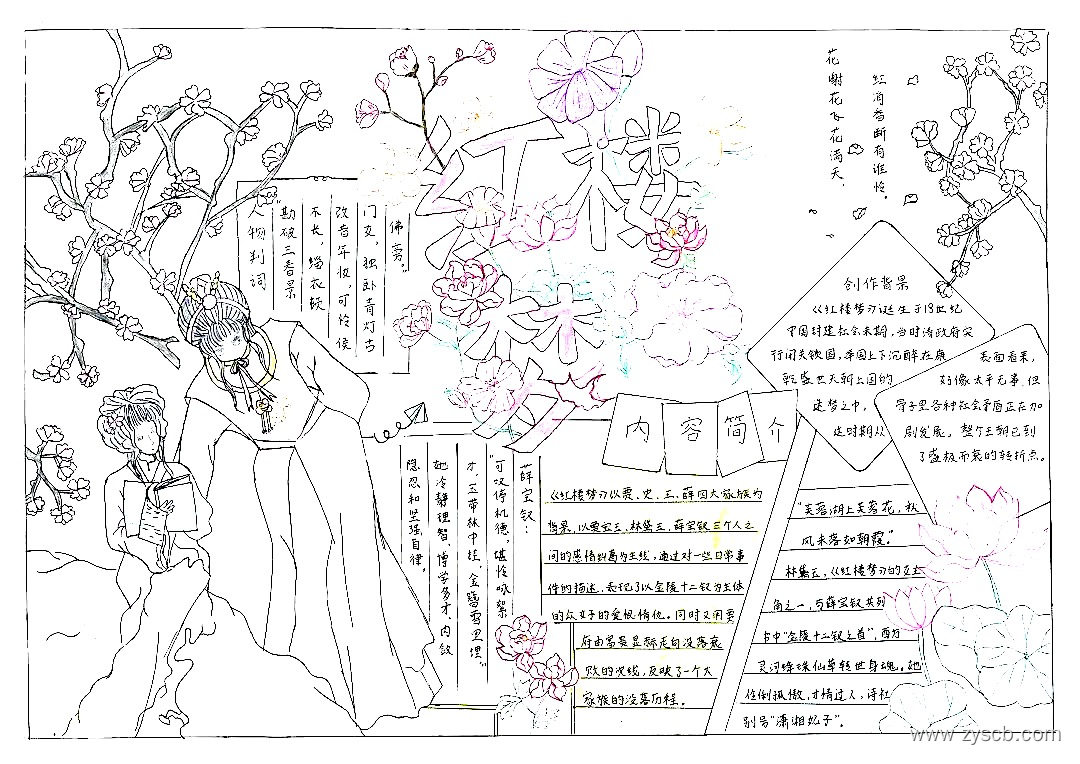 红楼梦
花谢花飞花满天，
红消香断有谁怜。
人物判词
勘破三春景
不长，缁衣顿
改昔年妆。可怜侯
门女，独卧青灯古
佛旁。
创作背景
《红楼梦》诞生于18世纪
中国封建社会末期，当时清政府实
行闭关锁国，举国上下沉醉在康
乾盛世天朝上国的
迷梦之中，
这时期从
表面看来，
好像太平无事，但
骨子里各种社会矛盾正在加
剧发展，整个王朝已到
了盛极而衰的转折点。
内容简介
《红楼梦》以贾、史、王、薛四大家族为
背景，以贾宝玉、林黛玉、薛宝钗三个人之
间的感情纠葛为主线，通过对一些日常事
件的描述，表现了以金陵十二钗为主体
的众女子的爱恨情仇。同时又用贾
府由富贵显赫走向没落衰
败的次线，反映了一个大
家族的没落历程。
薛宝钗：
“可叹停机德，堪怜咏絮
才，玉带林中挂，金簪雪里埋”
她冷静理智、博学多才、内敛
隐忍和坚强自律。
“芙蓉湖上芙蓉花，秋
风未落如朝霞”
林黛玉，《红楼梦》的女主
角之一，与薛宝钗共列
书中“金陵十二钗之首”，西方
灵河绛珠仙草转世身魂。她
性倒孤傲，才情过人，诗社
别号“潇湘妃子”。
www.zyscb.com